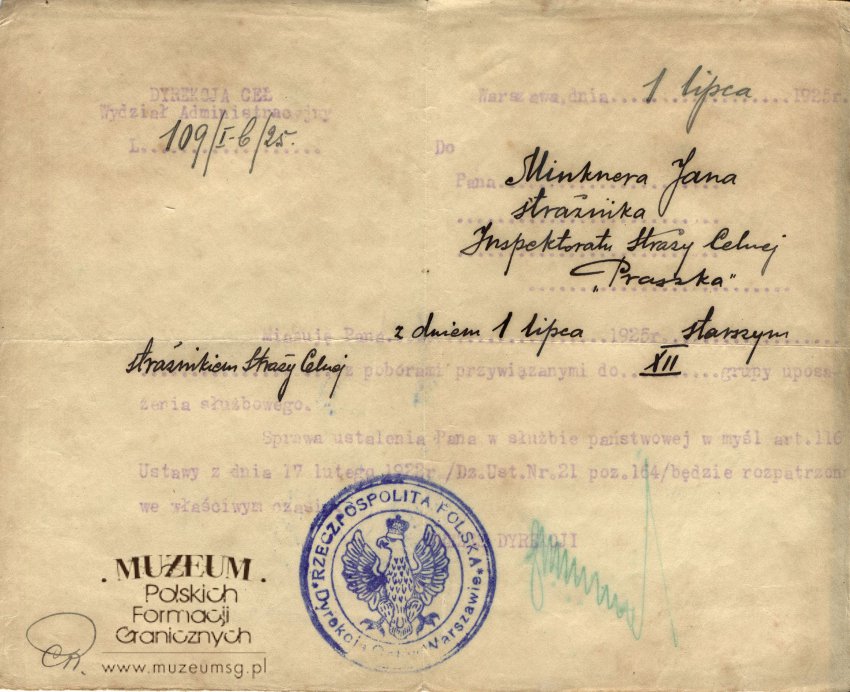 DYREKCJA CEŁ
Wydział Administracyjny
L. 109/I-b/25.
Warszawa, dnia 1 lipca 1925r.
Do
Pana Minknera Jana
strażnika
Inspektoratu Straży Celnej
„Praszka"
Mianuję Pana z dniem 1 lipca 1925r. starszym
strażnikiem Straży Celnej z poborami przywiązanymi do XII grupy uposa-
żenia służbowego.
Sprawa ustalenia Pana w służbie państwowej w myśl art.116
Ustawy z dnia 17 lutego 1922r./Dz.Ust.Nr.21 poz.164/będzie rozpatrzon
we właściwym czasie
DYREKCJI
RZECZPOSPOLITA POLSKA
Dyrekcja Ceł w Warszawie
. MUZEUM .
Polskich
Formacji
Granicznych
www.muzeumsg.pl